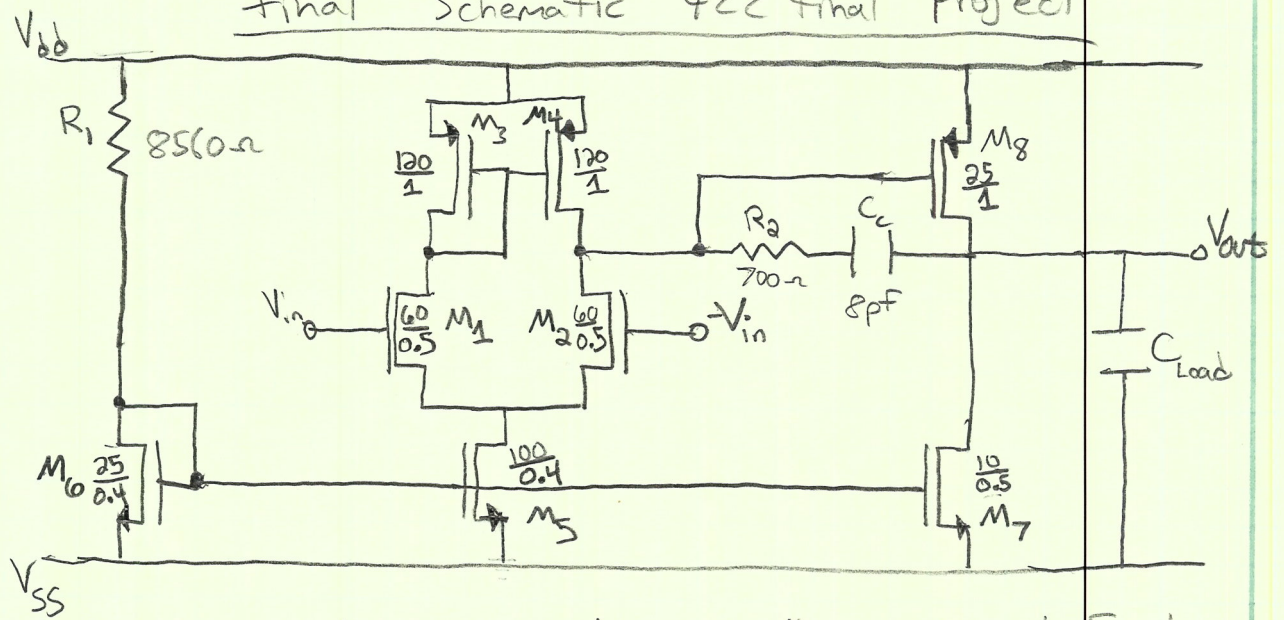 Final Schematic TCC Final Project
Vdd
R1 8560Ω
M3 M4
120/1 120/1
M8
25/1
R2 Cc
700Ω 8pf
Vout
Vin 60/0.5 M1 M2 60/0.5 -Vin
CLoad
M6 25/0.4
100/0.4 M5
10/0.5 M7
Vss